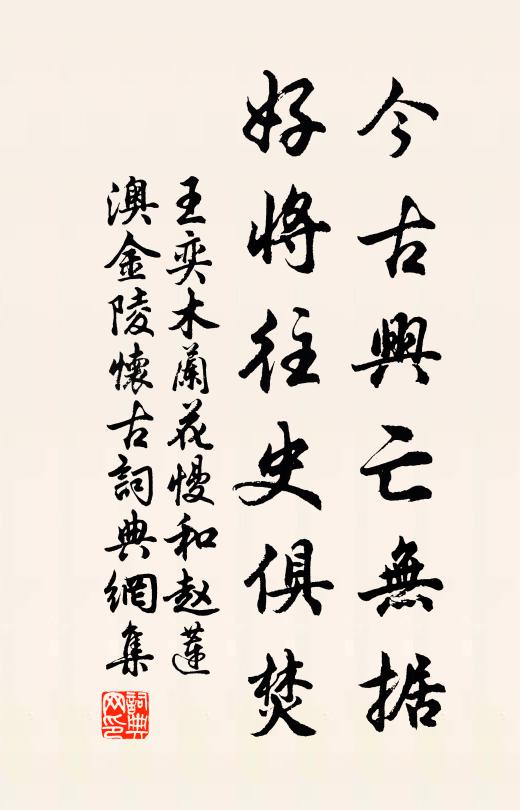 今古興亡無据
好將往史俱焚
王奕木蘭花慢和赵蓮
澳金陵懷古詞典網集
詞典
网印